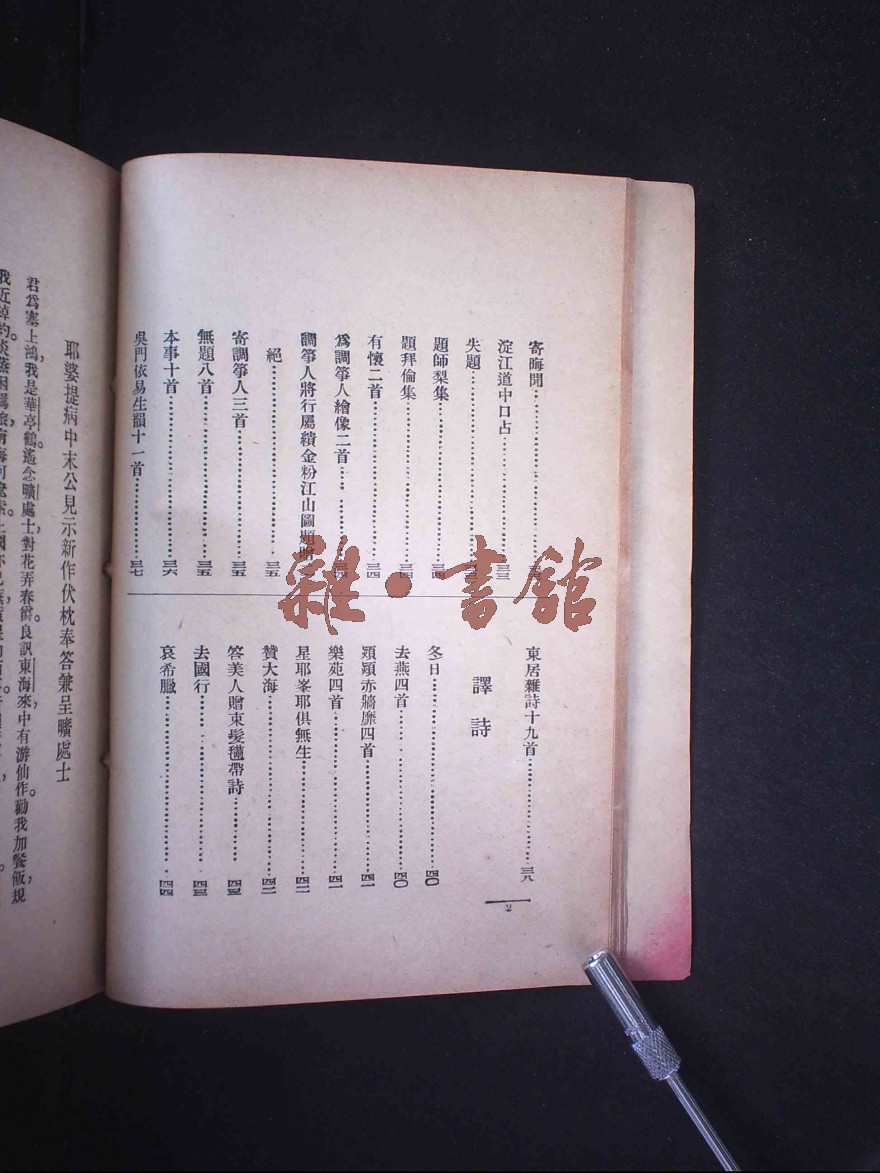 寄晦聞
淀江道中口占
失題
題師梨集 三四
題拜倫集 三四
有懷二首 三四
爲調箏人繪像二首
調箏人將行屬續金粉江山圖題贈
絕 三五
寄調箏人三首 三五
無題八首 三五
本事十首 三六
吳門依易生韻十一首 三七
東居雜詩十九首 三八
譯詩
冬日 四〇
去燕四首 四〇
熲熲赤牆靡四首 四一
樂苑四首 四一
星耶峯耶俱無生 四二
贊大海 四二
答美人贈束髮㲲帶詩 四三
去國行 四三
哀希臘 四四
2
耶婆提病中末公見示新作伏枕奉答兼呈曠處士
君爲塞上鴻，我是華亭鶴。遙念曠處士，對花弄春爵。良訊東海來，中有游仙作。勸我加餐飯，規
雜·書館